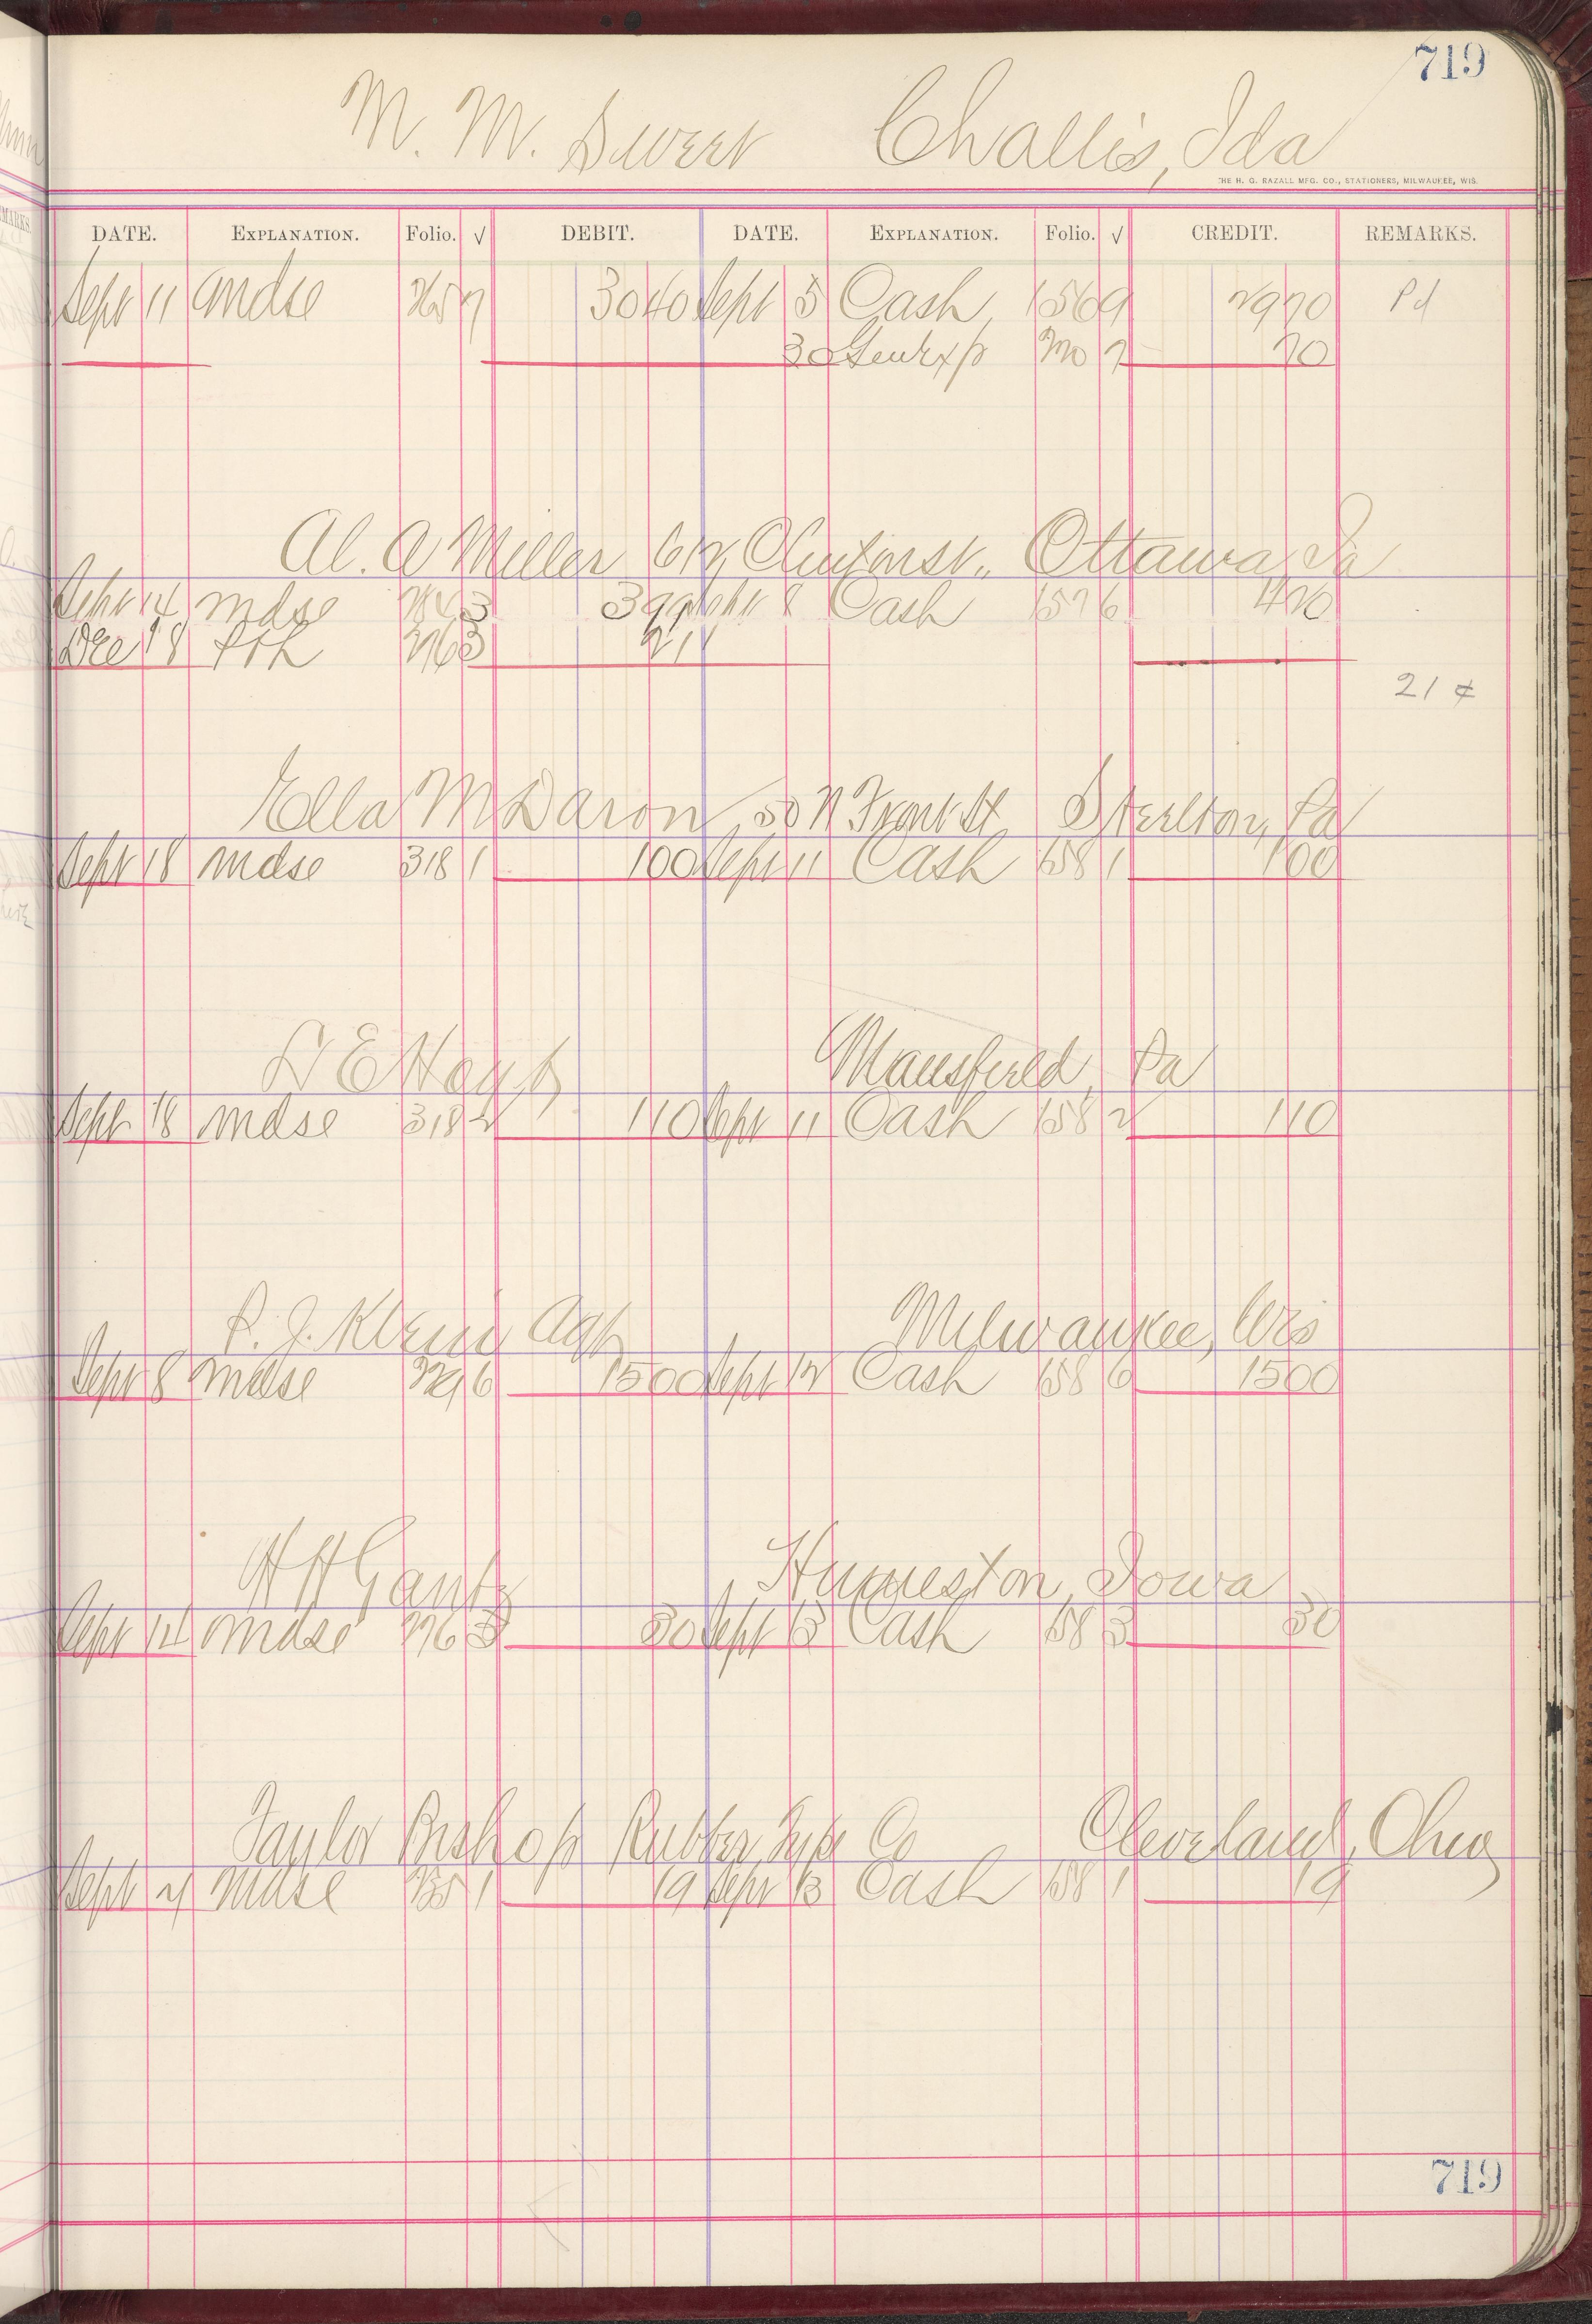 719
M. M. Sweet Challis, Ida
THE H. G. RAZALL MFG. CO., STATIONERS, MILWAUKEE, WIS.
DATE. EXPLANATION. Folio. √ DEBIT. DATE. EXPLANATION. Folio. √ CREDIT. REMARKS.
Sept 11 Mdse 265 7 3040 Sept 5 Cash 156 9 2970 Pd
30 GenExp 270 7 70
Al. A Miller 612 Clinton st., Ottawa
Sept 14 Mdse 284 3 399 Sept 8 Cash 157 6 420
Dec 18 276 3 21
21 ¢
Ella M Daron, 50 N Front St Steelton, Pa
Sept 18 Mdse 318 1 100 Sept 11 Cash 158 1 100
E Hoyt Mansfield, Pa
Sept 18 Mdse 318 2 110 Sept 11 Cash 158 2 110
P. J. Klein Agt Milwaukee, Wis
Sept 8 Mdse 229 6 1500 Sept 12 Cash 158 6 1500
H H Gantz Humeston, Iowa
Sept 14 Mdse 276 3 30 Sept 13 Cash 158 3 30
Taylor Bishop Rubber Type Co Cleveland, Ohio
Sept Mdse 1 19 Sept 13 Cash 158 1 19
719